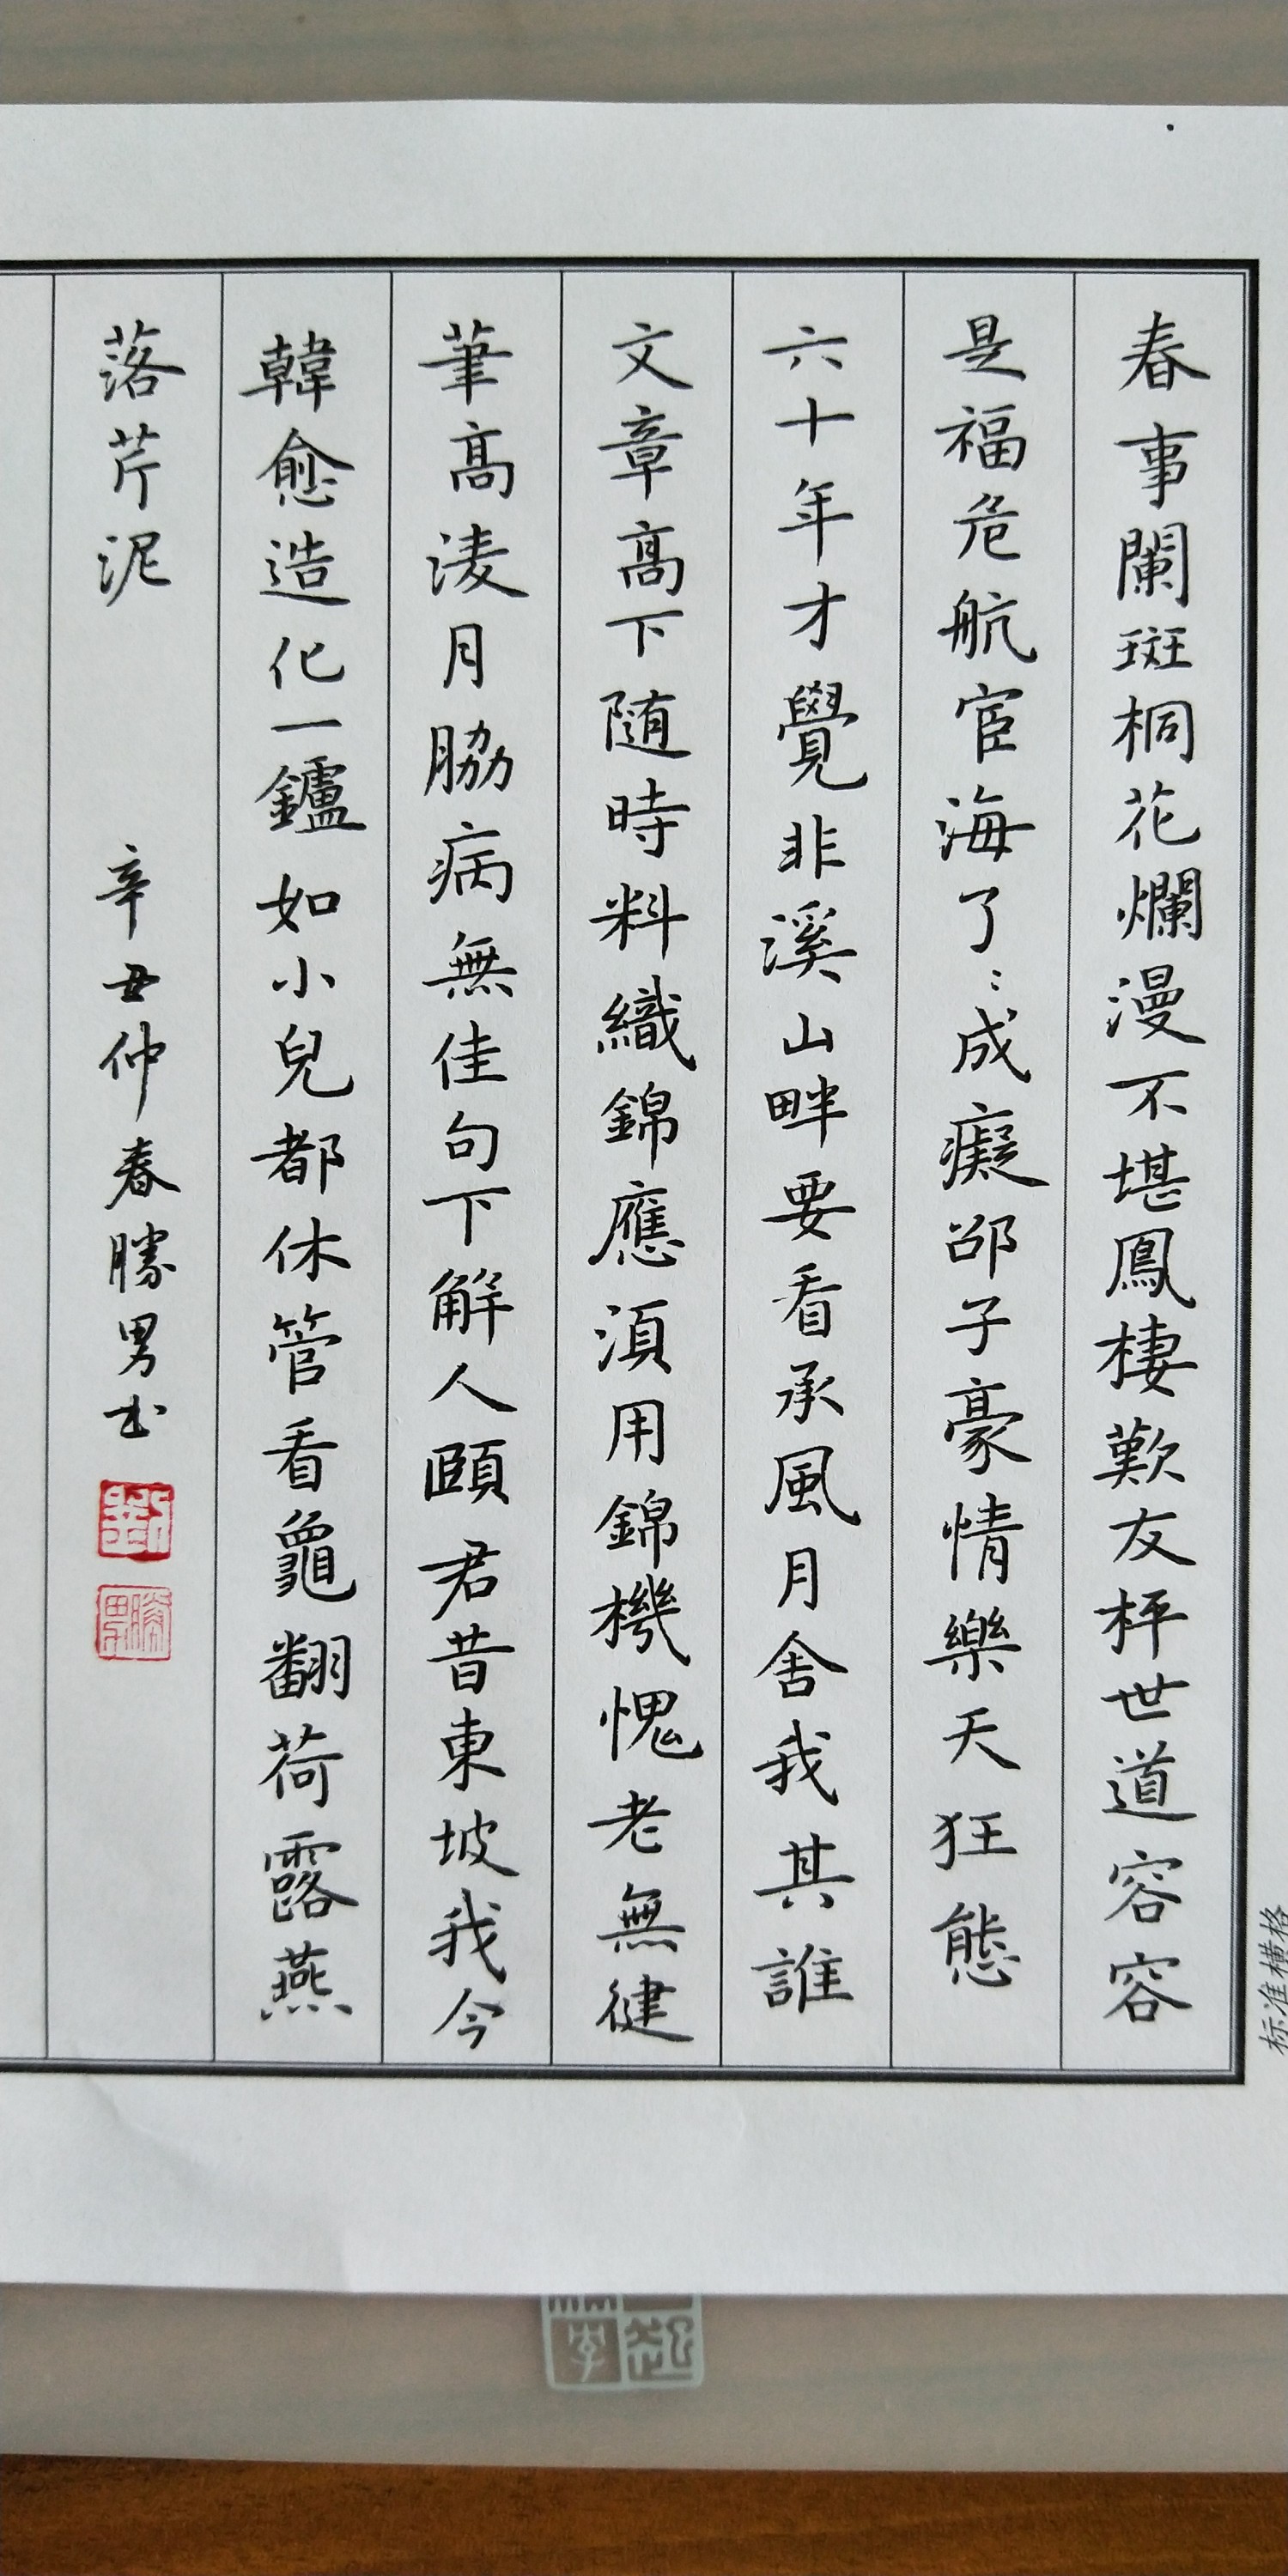 春事闌斑桐花爛漫不堪鳳棲歎友枰世道容容
是福危航宦海了：成癡邵子豪情樂天狂態
六十年才覺非溪山畔要看承風月舍我其誰
文章高下随時料織錦應須用錦機愧老無健
筆高淩月脇病無佳句下解人頤君昔東坡我今
韓愈造化一鑪如小兒都休管看龜翻荷露燕
落芹泥
辛丑仲春勝男书
劉
勝男
标准横格